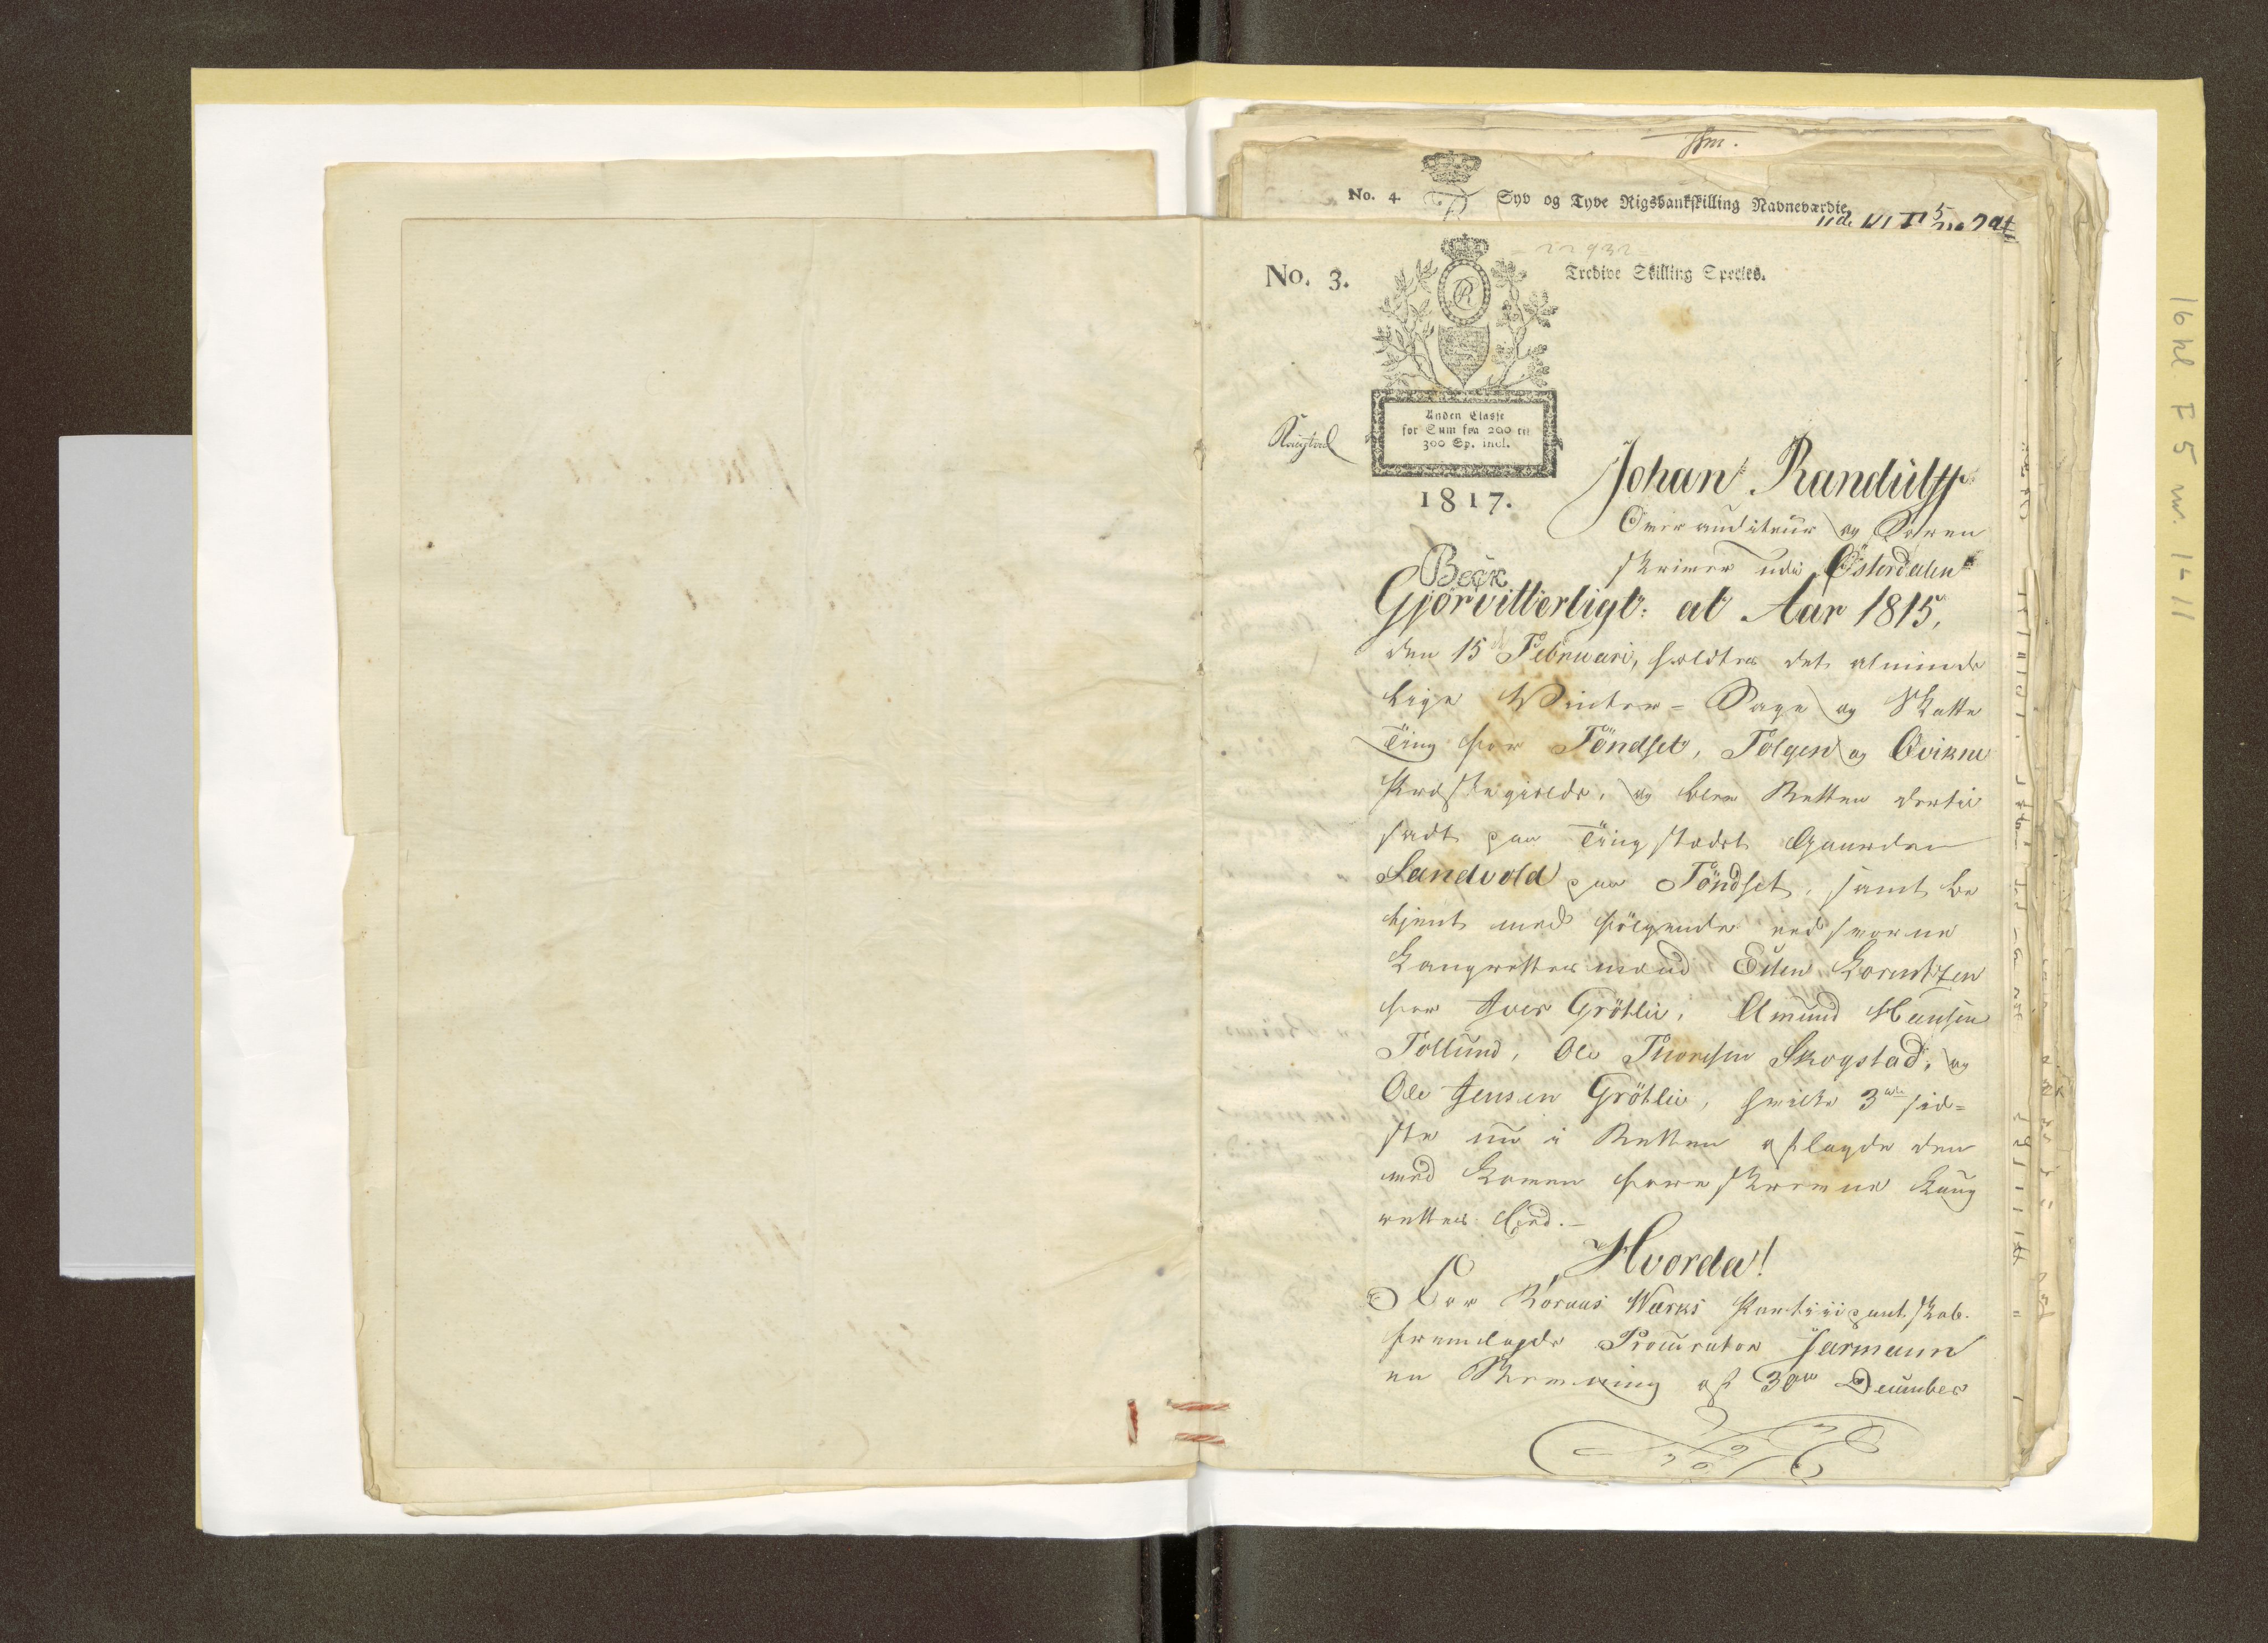 No. 4.
Syv og Tyve Rigsbankskilling Navneværdie
No. 3.
Tredive Skilling Species.
Anden Classe
for Sum fra 200 til
300 Sp. incl.
1817.
Johan Randulff
Over auditeur og Soren
skriver udi Österdalen
Beck
Gjör vitterligt: at Aar 1815,
den 15 Februari, holdtes det alminde
lige Winter=Sage og Skatte
Ting for Töndset, Tolgen og Qvikne
Præstegields, og blev Retten dertil
sadt paa Tingstædet Gaarden
Sandvold paa Töndset, samt be
tjent med fölgende eedsvorne
Laugrettesmænd Eden Lorentzen
for Iver Grötlie, Amund Hansen
Tollund, Ole Thoresen Skogstad, og
Ole Jensen Grötlie, hvilke 3de sid=
ste nu i Retten aflagde den
ved Loven foreskrevne Laug
rettes Eed.-
Hvorda!
For Röraas Værks Participantskab.
fremlagde Procurator Jarmann
en Stævning af 30te December
16 kl F 5 nr. 1-11